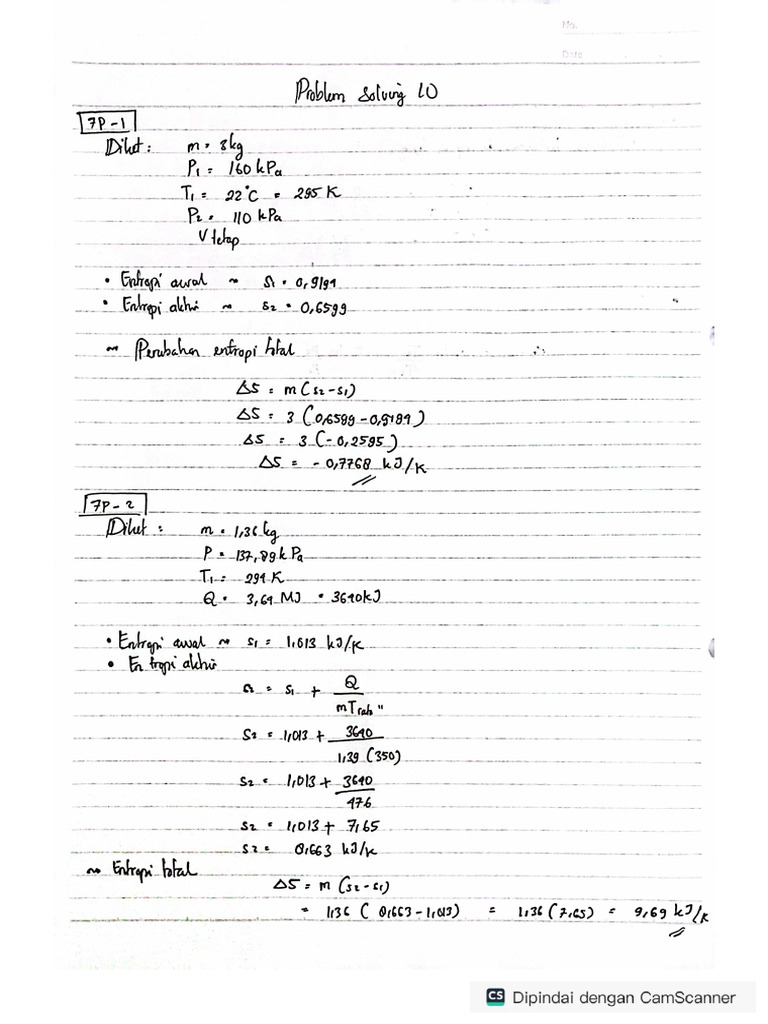 No.
Date
Problem Solving 10
7P-1
Diket : m = 3kg
P1 = 160 kPa
T1 = 22°C = 295 K
P2 = 110 kPa
V tetap
• Entropi awal ~ s1 = 0,9194
• Entropi akhir ~ s2 = 0,6599
~ Perubahan entropi total
ΔS = m (s2 - s1)
ΔS = 3 (0,6599 - 0,9194)
ΔS = 3 (-0,2595)
ΔS = -0,7768 kJ/K
7P-2
Diket : m = 1,36 kg
P = 137,89 kPa
T1 = 294 K
Q = 3,64 MJ = 3640 kJ
• Entropi awal ~ s1 = 1,013 kJ/K
• Entropi akhir
s2 = s1 + Q / mTrata"
s2 = 1,013 + 3640 / 1,39 (350)
s2 = 1,013 + 3640 / 476
s2 = 1,013 + 7,65
s2 = 8,663 kJ/K
~ Entropi total
ΔS = m (s2 - s1)
= 1,36 ( 8,663 - 1,013) = 1,36 (7,65) = 9,69 kJ/K
CS Dipindai dengan CamScanner